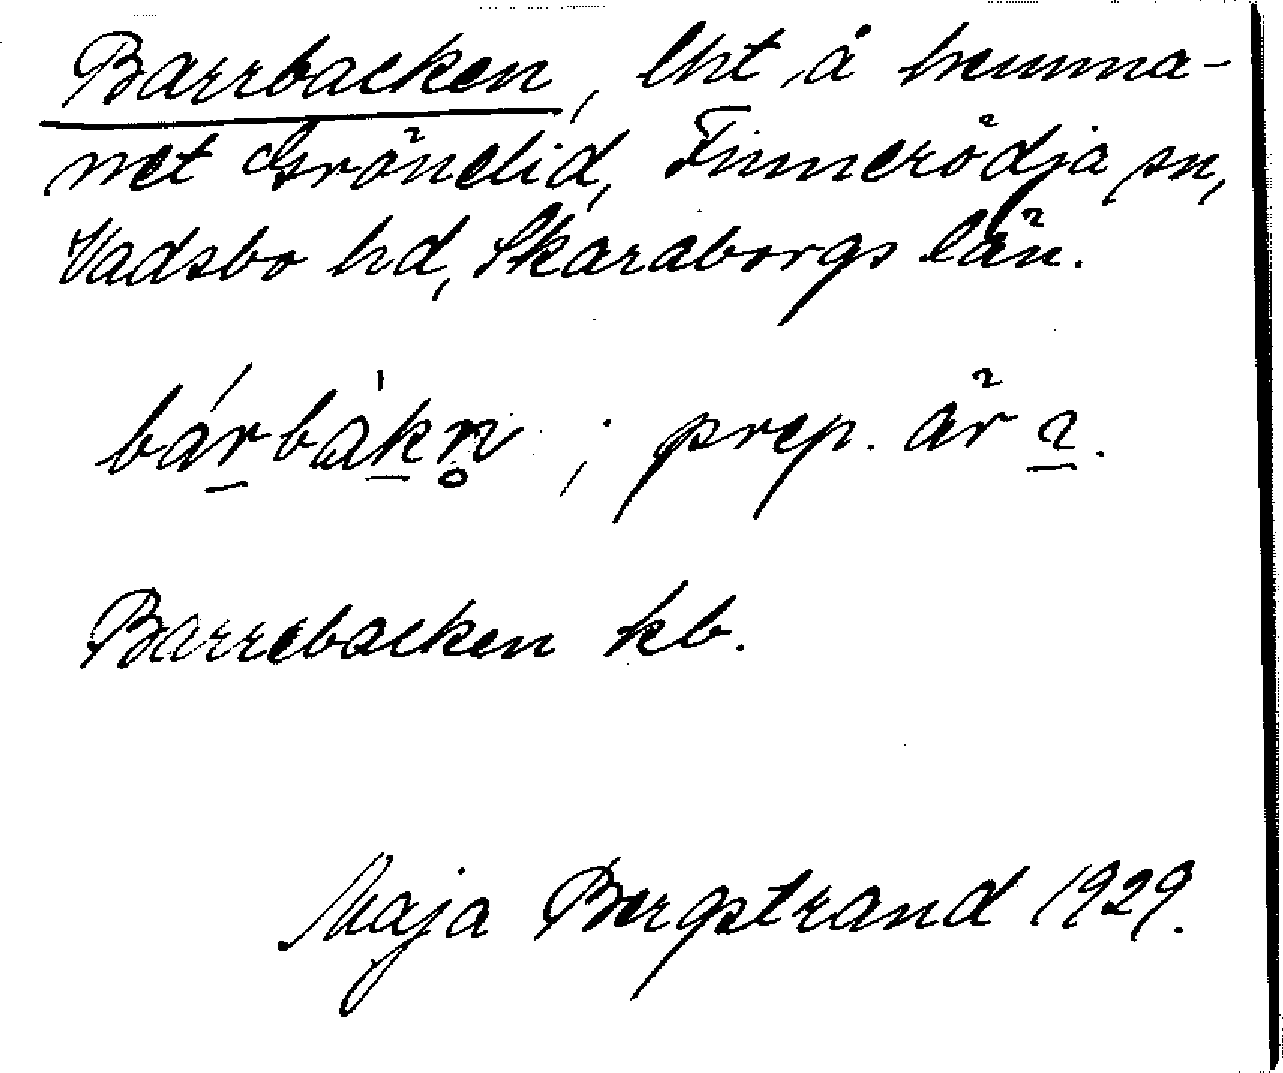 Barrbacken, lht å hemma-
net Grönelid, Finnerödja sn,
Vadsbo hd, Skaraborgs län.
bárbàkn̥ ; prep. är
Barrebacken kb.
Maja Bergstrand 1929.